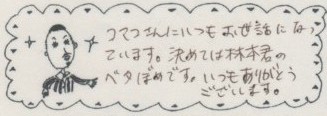 コマコさんにいつもお世話になっ
ています。決めては林本君の
ベタぼめです。いつもありがとう
ございます。